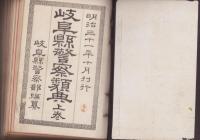 明治三十一年十月刊行
岐阜縣警察類典 上卷
岐阜縣警察部編纂